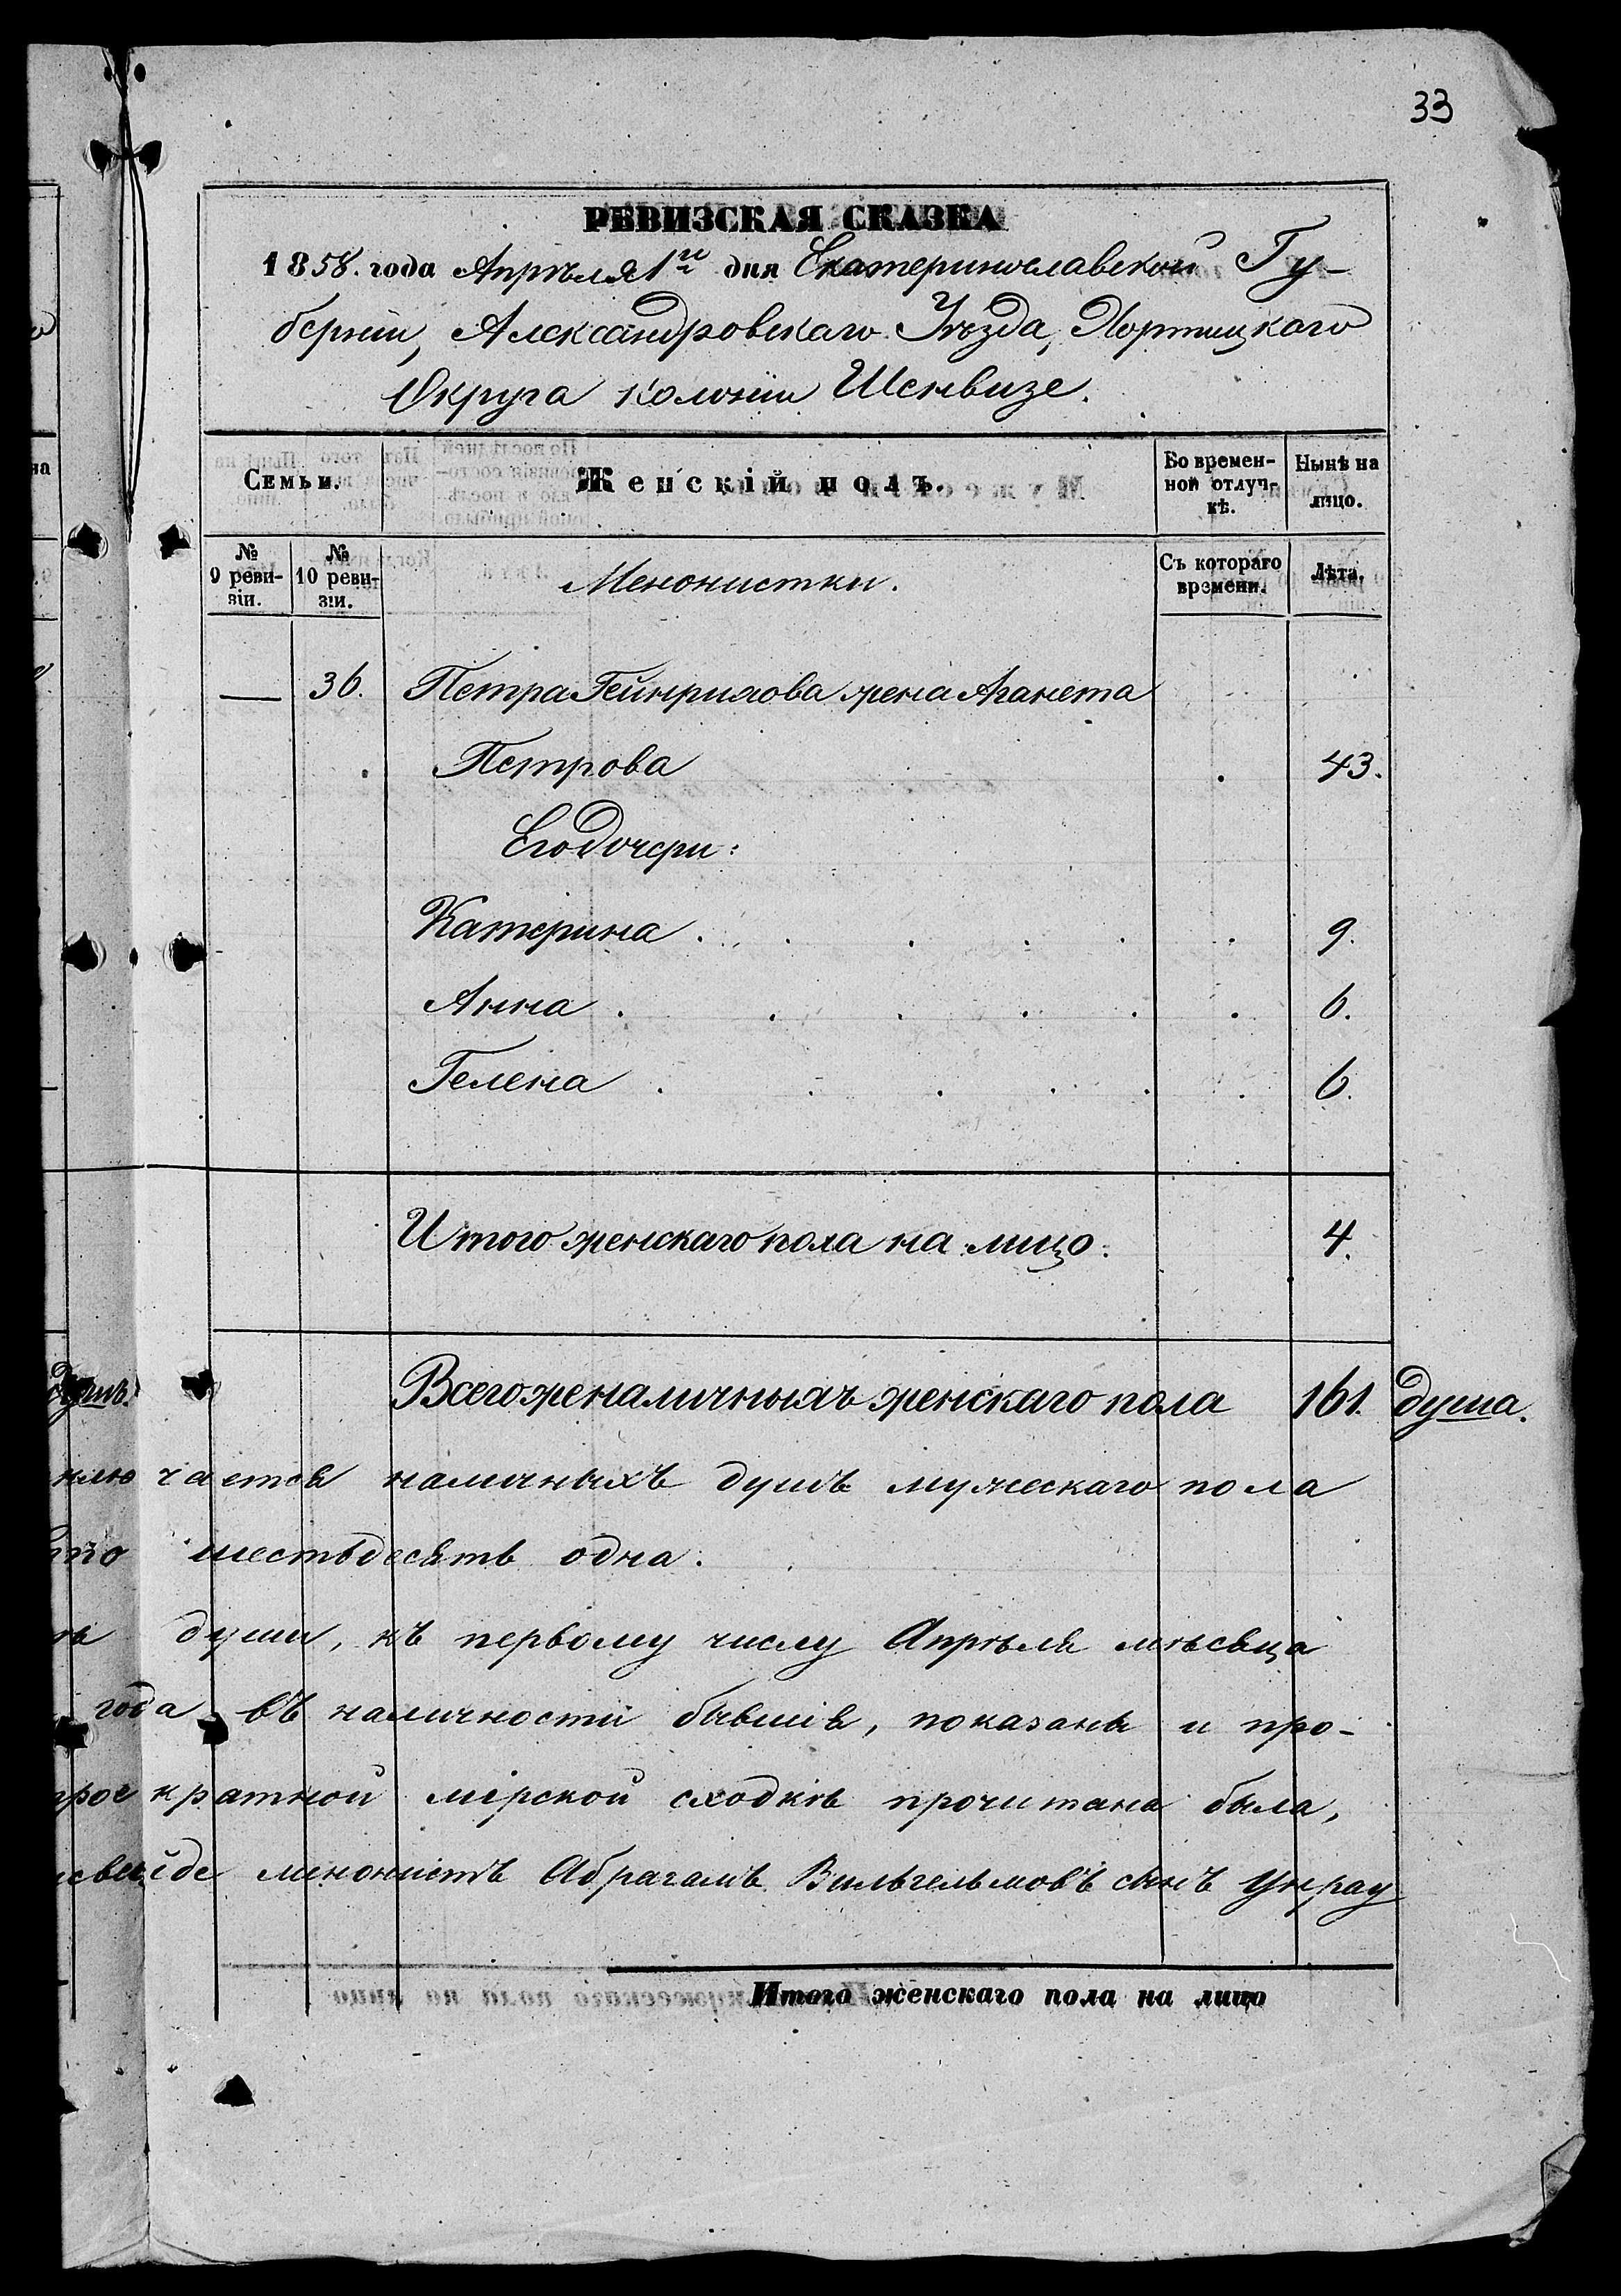 33
РЕВИЗСКАЯ СКАЗКА
1858. года Апрѣля 1го дня Екатеринославской Гу-
берніи, Александровскаго Уѣзда, Хортицкаго
Округа колоніи Шенвизе.
Семьи. Женскій полъ. Во времен-ной отлуч-кѣ. Нынѣ на лицо.
№ 9 реви-зіи. № 10 реви-зіи. Менонистки. Съ котораго времени. Лѣта.
— 36. Петра Гейнрихова жена Аганета
Петрова 43.
Его дочери:
Катерина 9.
Анна 6.
Гелена 6.
Итого женскаго пола на лицо: 4.
душъ. Всего же наличныхъ женскаго пола 161. душа.
клю чается наличныхъ душъ мужескаго пола
сто шестьдесятъ одна.
души, къ первому числу Апрѣля мѣсяца
года въ наличности бывшія, показаны и про-
трое кратной мірской сходкѣ прочитана была,
менонистъ Абрагамъ Вильгельмовъ сынъ Унрау
Итого женскаго пола на лицо